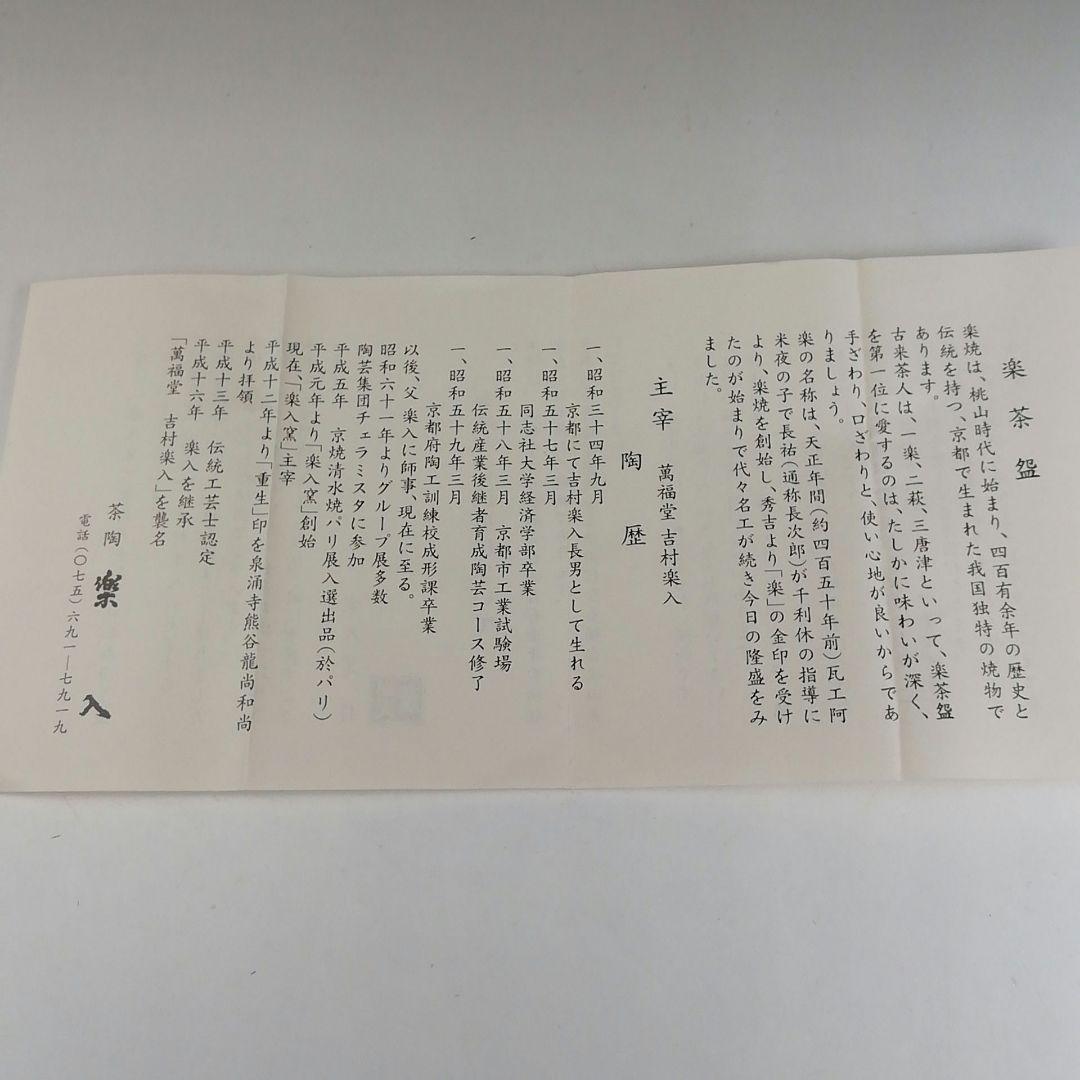 楽茶盌
楽焼は、桃山時代に始まり、四百有余年の歴史と
伝統を持つ、京都で生まれた我国独特の焼物で
あります。
古来茶人は、一楽、二萩、三唐津といって、楽茶盌
を第一位に愛するのは、たしかに味わいが深く、
手ざわり、口ざわりと、使い心地が良いからであ
りましょう。
楽の名称は、天正年間(約四百五十年前)瓦工阿
米夜の子で長祐(通称長次郎)が千利休の指導に
より、楽焼を創始し、秀吉より「楽」の金印を受け
たのが始まりで代々名工が続き今日の隆盛をみ
ました。
主宰 萬福堂 吉村楽入
陶歴
一、昭和三十四年九月
京都にて吉村楽入長男として生れる
一、昭和五十七年三月
同志社大学経済学部卒業
一、昭和五十八年三月 京都市工業試験場
伝統産業後継者育成陶芸コース修了
一、昭和五十九年三月
京都府陶工訓練校成形課卒業
以後、父 楽入に師事、現在に至る。
昭和六十一年よりグループ展多数
陶芸集団チェラミスタに参加
平成五年 京焼清水焼パリ展入選出品(於パリ)
平成元年より「楽入窯」創始
現在、「楽入窯」主宰
平成十二年より「重生」印を泉涌寺熊谷龍尚和尚
より拝領
平成十三年 伝統工芸士認定
平成十六年 楽入を継承
「萬福堂 吉村楽入」を襲名
茶陶 樂入
電話(〇七五)六九一―七九一九